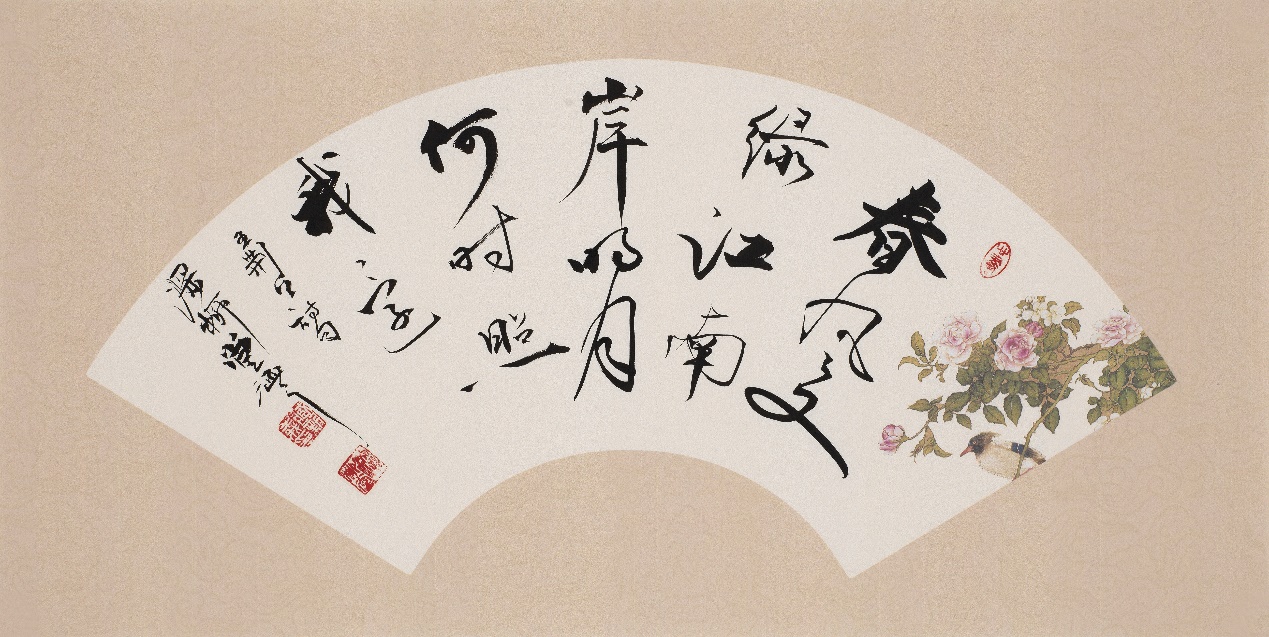 春风又
绿江南
岸明月
何时照
我还
王荆公诗